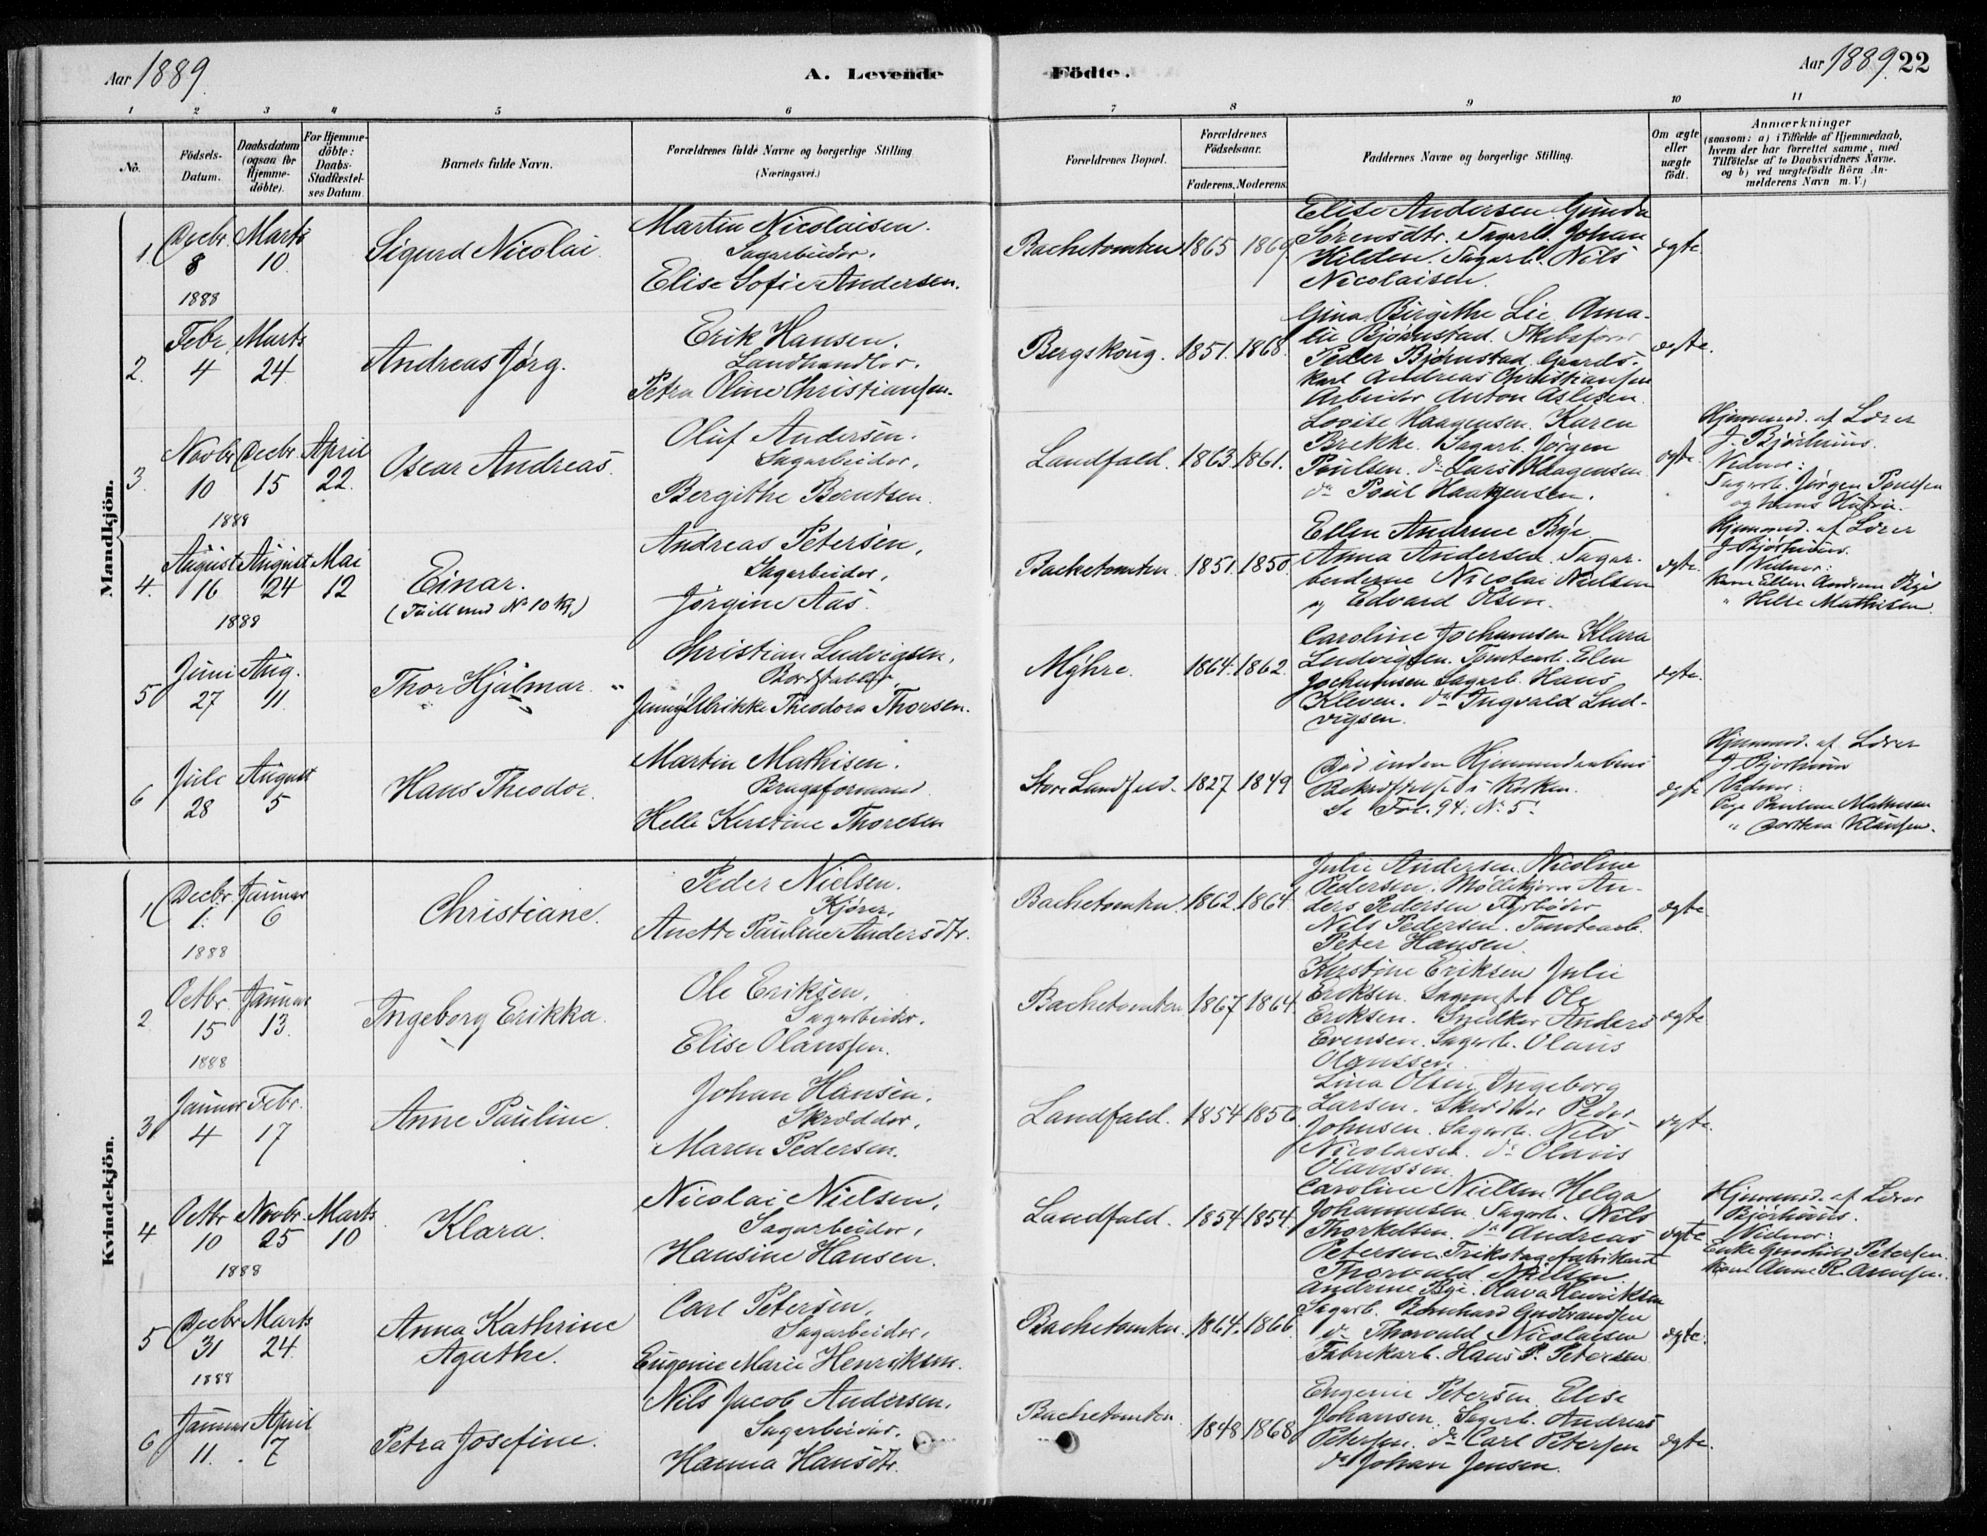 Aar 1889.
A. Levende
Födte.
Aar 1889. 22
1 2 3 4 5 6 7 8 9 10 11
No.
Födsels-
Datum.
Daabsdatum
(ogsaa for
Hjemme-
döbte).
For Hjemme-
döbte:
Daabs-
Stadfæstel-
ses Datum.
Barnets fulde Navn.
Forældrenes fulde Navne og borgerlige Stilling
(Næringsvei.)
Forældrenes Bopæl.
Forældrenes
Födselsaar.
Faderens. Moderens.
Faddernes Navne og borgerlige Stilling.
Om ægte
eller
uægte
födt.
Anmærkninger
(saasom: a) i Tilfælde af Hjemmedaab,
hvem der har forrettet samme, med
Tilföielse af to Daabsvidners Navne.
og b) ved uægtefödte Börn An-
melderens Navn m. V.)
Mandkjön.
1
Decbr.
8
1888
Marts
10.
Sigurd Nicolai
Martin Nicolaisen.
Sagarbeider.
Elise Sofie Andersen.
Bachetomten 1865 1869
Elise Andersen Gunda
Sørensdtr. Sagarb. Johan
Hilden. Sagarb. Nils
Nicolaisen.
ægte
2.
Febr.
4
Marts
24
Andreas Jørg.
Erik Hansen.
Landhandler.
Petra Oline Christiansen.
Bergskoug. 1851. 1868.
Gina Birgithe Lie Ama-
lie Bjørnstad.
Peder Bjørnstad. Gaards-
karl Andreas Christiansen
Arbeider Anton Aslesen.
ægte.
3.
Novbr.
10
1888
Decbr.
15
April
22.
Oscar Andreas.
Oluf Andersen.
Sagarbeider.
Bergithe Berntsen.
Landfald. 1863. 1861.
Lovise Haagensen. Karen
Brekke. Sagarb. Jørgen
Poulsen. do Lars Haagensen
do Poul Haagensen.
ægte.
Hjemmed. af Lærer
J. Bjørhuus.
Vidner:
Sagarb. Jørgen Poulsen
og hans Hustru.
4.
August
16
1888
August
24
Mai
12
Einar.
(Tvill. med No 10 Kj.)
Andreas Petersen,
Sagarbeider,
Jørgine Aas.
Bachetomten. 1851. 1850.
Ellen Andrine Bye.
Anna Andersen. Sagar-
beiderne Nicolai Nielsen
og Edvard Olsen.
ægte.
Hjemmed. af Lærer
J. Bjørhuus.
Vidner:
Kone Ellen Andrine Bye
" Helle Mathisen.
5
Juni
27
Aug.
11.
Thor Hjalmar.
Christian Ludvigsen,
Jenny Ulrikke Theodora Thorsen.
Myhre. 1864. 1862.
Caroline Jochumsen Klara
Ludvigsen. Tomtearb. Elen
Jochumsen Sagarb. Hans
Kleven. do Ingvald Lud-
vigsen.
ægte.
6
Juli
28
August
5
Hans Theodor.
Martin Mathisen.
Brugsformand.
Helle Kerstine Thoresen
Store Landfald. 1827 1849
Død inden Hjemmedaabens
Bekræftelse i Kirken.
Se Fol. 94. No 5.
ægte
Hjemmed. af Lærer
J. Bjørhuus
Vidner:
Pige Pauline Mathisen
" Dorthea Klausen.
Kvindekjön.
1
Decbr.
1.
1888
Januar
6
Christiane.
Peder Nielsen.
Kjører.
Anette Pauline Andersdtr.
Bachetomten. 1862. 1864.
Julie Andersen. Nicoline
Pedersen. Møllekjører An-
ders Pedersen Fyrbøder
Nils Pedersen. Tomtearb.
Peter Hansen.
ægte.
2
Octbr.
15
1888
Januar
13.
Ingeborg Erikka.
Ole Eriksen.
Sagarbeider.
Elise Olanssen.
Bachetomten. 1867 1864
Kerstine Eriksen Julie
Eriksen. Sagmester Ole
Eriksen. Snedker Anders
Evensen. Sagarb. Olans
Olanssen.
ægte
3
Januar
4
Febr.
17
Anne Pauline.
Johan Hansen.
Skrædder.
Maren Pedersen.
Landfald. 1854 1856.
Lina Olsen Ingeborg
Larsen. Skrædder Peder
Johnsen. Sagarb. Nils
Nicolaisen. do Olaus
Olanssen.
ægte.
4
Octbr.
10
1888
Novbr.
25
Marts
10
Klara.
Nicolai Nielsen,
Sagarbeider,
Hansine Hansen.
Landfald. 1854 1854.
Caroline Nielsen Helga
Johannesen. Sagarb. Nils
Thorkelsen. do Andreas
Petersen.
Thorvald Nielsen
ægte
Hjemmed. af Lærer
Bjørhuus.
Vidner:
Enke Gunhild Petersen.
Kone Anne R. Arnesen.
5
Decbr.
31
1888
Marts
24.
Anna Kathrine
Agathe.
Carl Petersen.
Sagarbeider.
Eugenie Marie Henriksen.
Bachetomten. 1864. 1866.
Andrine Bye. Olava Henriksen
Sagarb. Bernhard Gudbrandsen
do Thorvald Nicolaisen
Fabrikarb. Hans P. Petersen
ægte.
6
Januar
11.
April
7
Petra Josefine.
Nils Jacob Andersen.
Sagarbeider.
Hanna Hansdtr.
Bachetomten. 1848 1868.
Eugenie Petersen Elise
Johansen. Sagarb. Andreas
Petersen. do Carl Petersen
do Johan Jensen.
ægte.